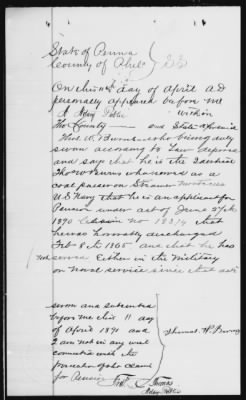 State of Penna
County of Phil } SS
On this 11th day of april AD
personally appeared before me
A Notary Public within
the County and State aforesaid
Thos. W. Burns who being duly
sworn according to Law deposes
and say that he is the
Thos W Burns who served as a
coal passer on Steamer
U.S Navy that he is an applicant for
Pension under act of June 27th
1890 that
he was honorably discharged
Feb 8th 1865 and that he has
not service Either in the Military
or Naval service since that date
sworn and subscribed
before me this 11 day
of April 1891 and
I am not in any way
connected with the
prosecution of the claim
for Pension
Thomas W Burns
Thomas
Notary Public